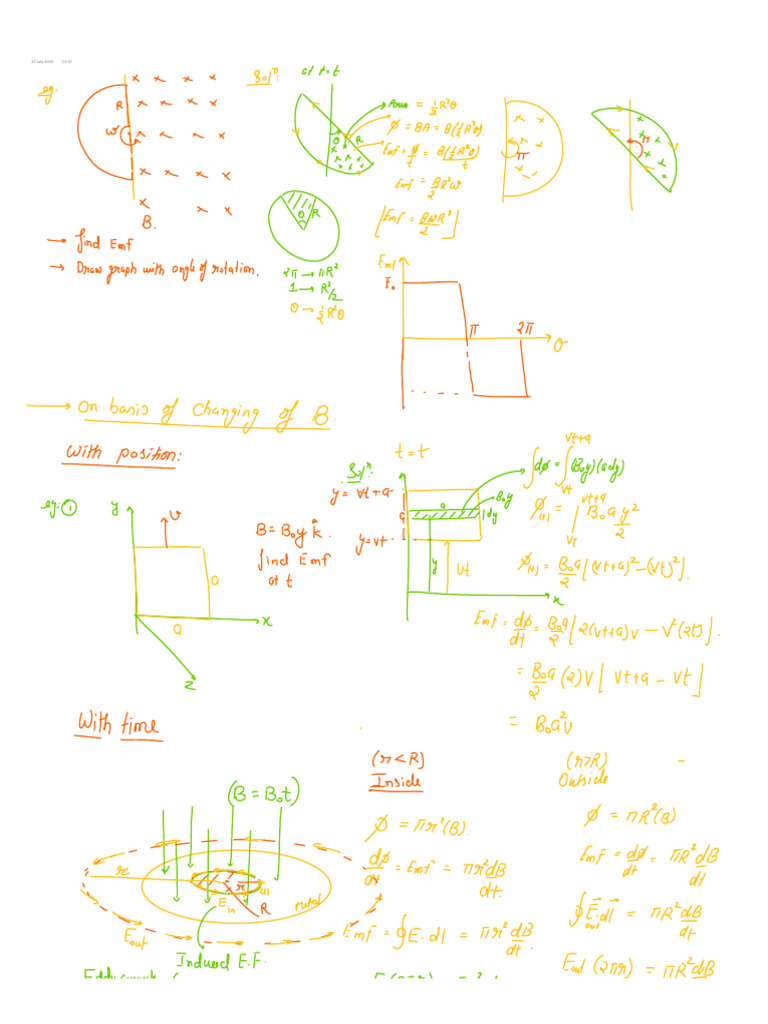 eg.
R
ω
B.
→ find Emf
→ Draw graph with angle of rotation.
Solⁿ:
at t=t
θ
R
Area = ½R²θ
φ = BA = B(½R²θ).
Emf = φ/t = B(½R²θ)/t
Emf = B/2 R²ω
[Emf = BωR²/2]
π
π
θ R
2π → πR²
1 → R²/2
θ → ½R²θ
Emf
E₀
π
2π
θ
→ On basis of Changing of B.
With position:
eg: ①
y
v
a
a
x
z
B = B₀y k̂.
find Emf
at t
Solⁿ:
t = t
y = vt+a
y = vt
a
a
B₀y
dy
y
vt
x
∫dφ = ∫_{vt}^{vt+a} (B₀y)(ady)
φ(t) = |_{vt}^{vt+a} B₀a y²/2
φ(t) = B₀a/2 [(vt+a)² - (vt)²].
Emf = dφ/dt = B₀a/2 [2(vt+a)v - v²(2t)].
= B₀a/2 (2)v [vt+a - vt]
= B₀a²v
With time
(B = B₀t)
r
r
dl
R
metal
E in
E out
Induced E.F.
(r<R)
Inside
φ = πr²(B).
dφ/dt = Emf = πr²dB/dt.
Emf = ∮E.dl = πr²dB/dt.
(r>R)
Outside
φ = πR²(B)
Emf = dφ/dt = πR²dB/dt
∮E⃗out.dl⃗ = πR²dB/dt
Eout (2πr) = πR²dB